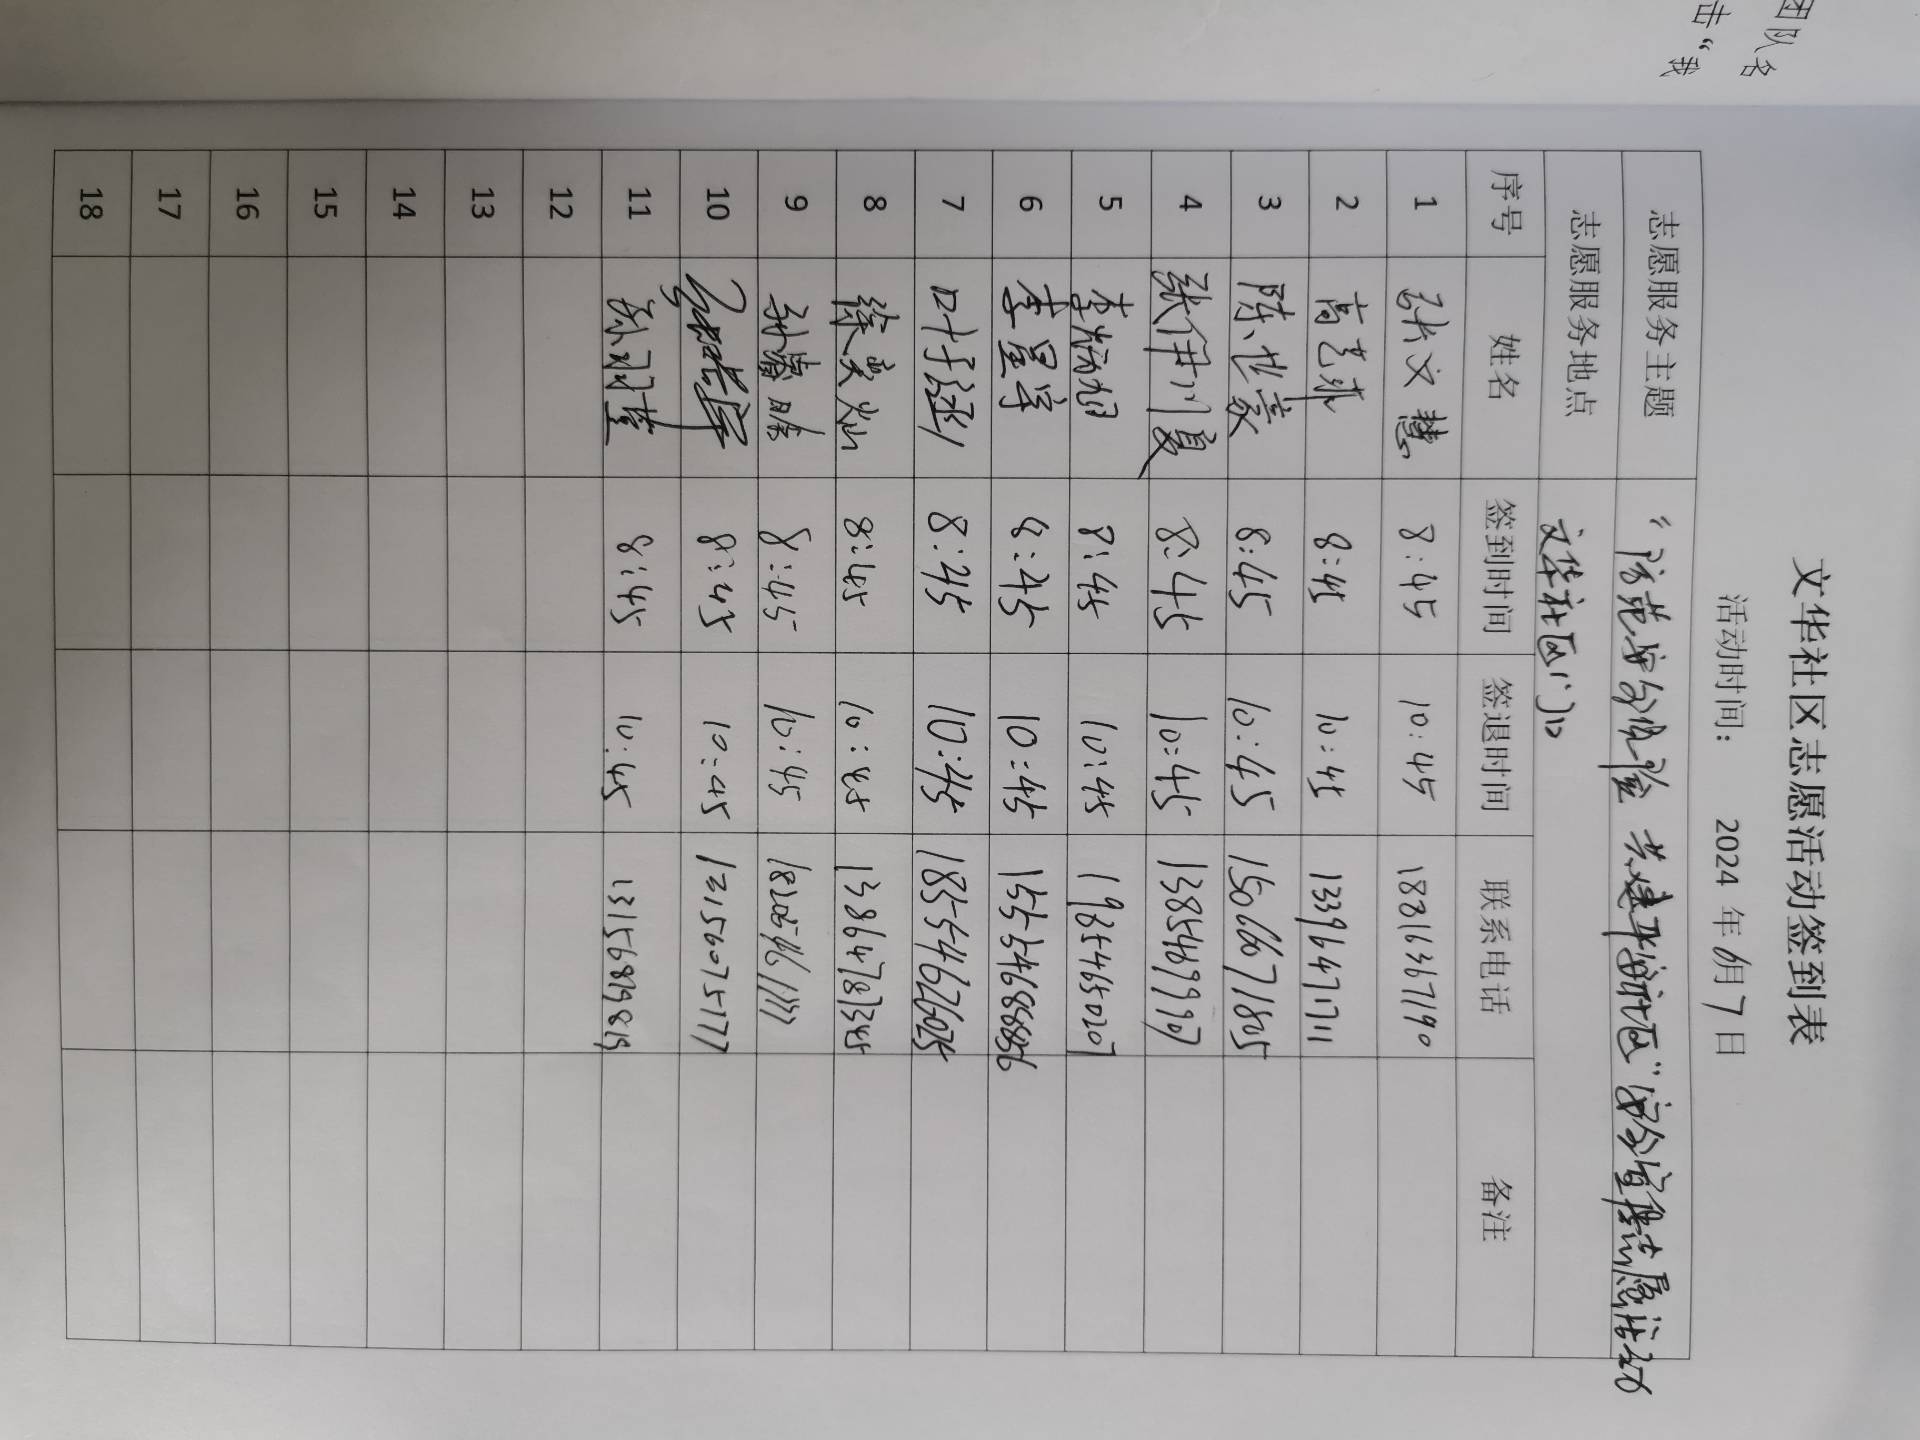 团队名
击“我
文华社区志愿活动签到表
活动时间： 2024 年 6月 7 日
志愿服务主题 “防范安全风险 共建平安社区”安全宣传志愿活动
志愿服务地点 文华社区门口
序号 姓名 签到时间 签退时间 联系电话 备注
1 张文慧 8:45 10:45 18816367190
2 8:45 10:45 13396471711
3 陈世豪 8:45 10:45 15066071805
4 张伊川夏 8:45 10:45
5 8:45 10:45 19854650207
6 李星宇 8:45 10:45
7 叶子丞 8:45 10:45
8 8:45 10:45
9 8:45 10:45
10 8:45 10:45
11 8:45 10:45 13156819819
12
13
14
15
16
17
18